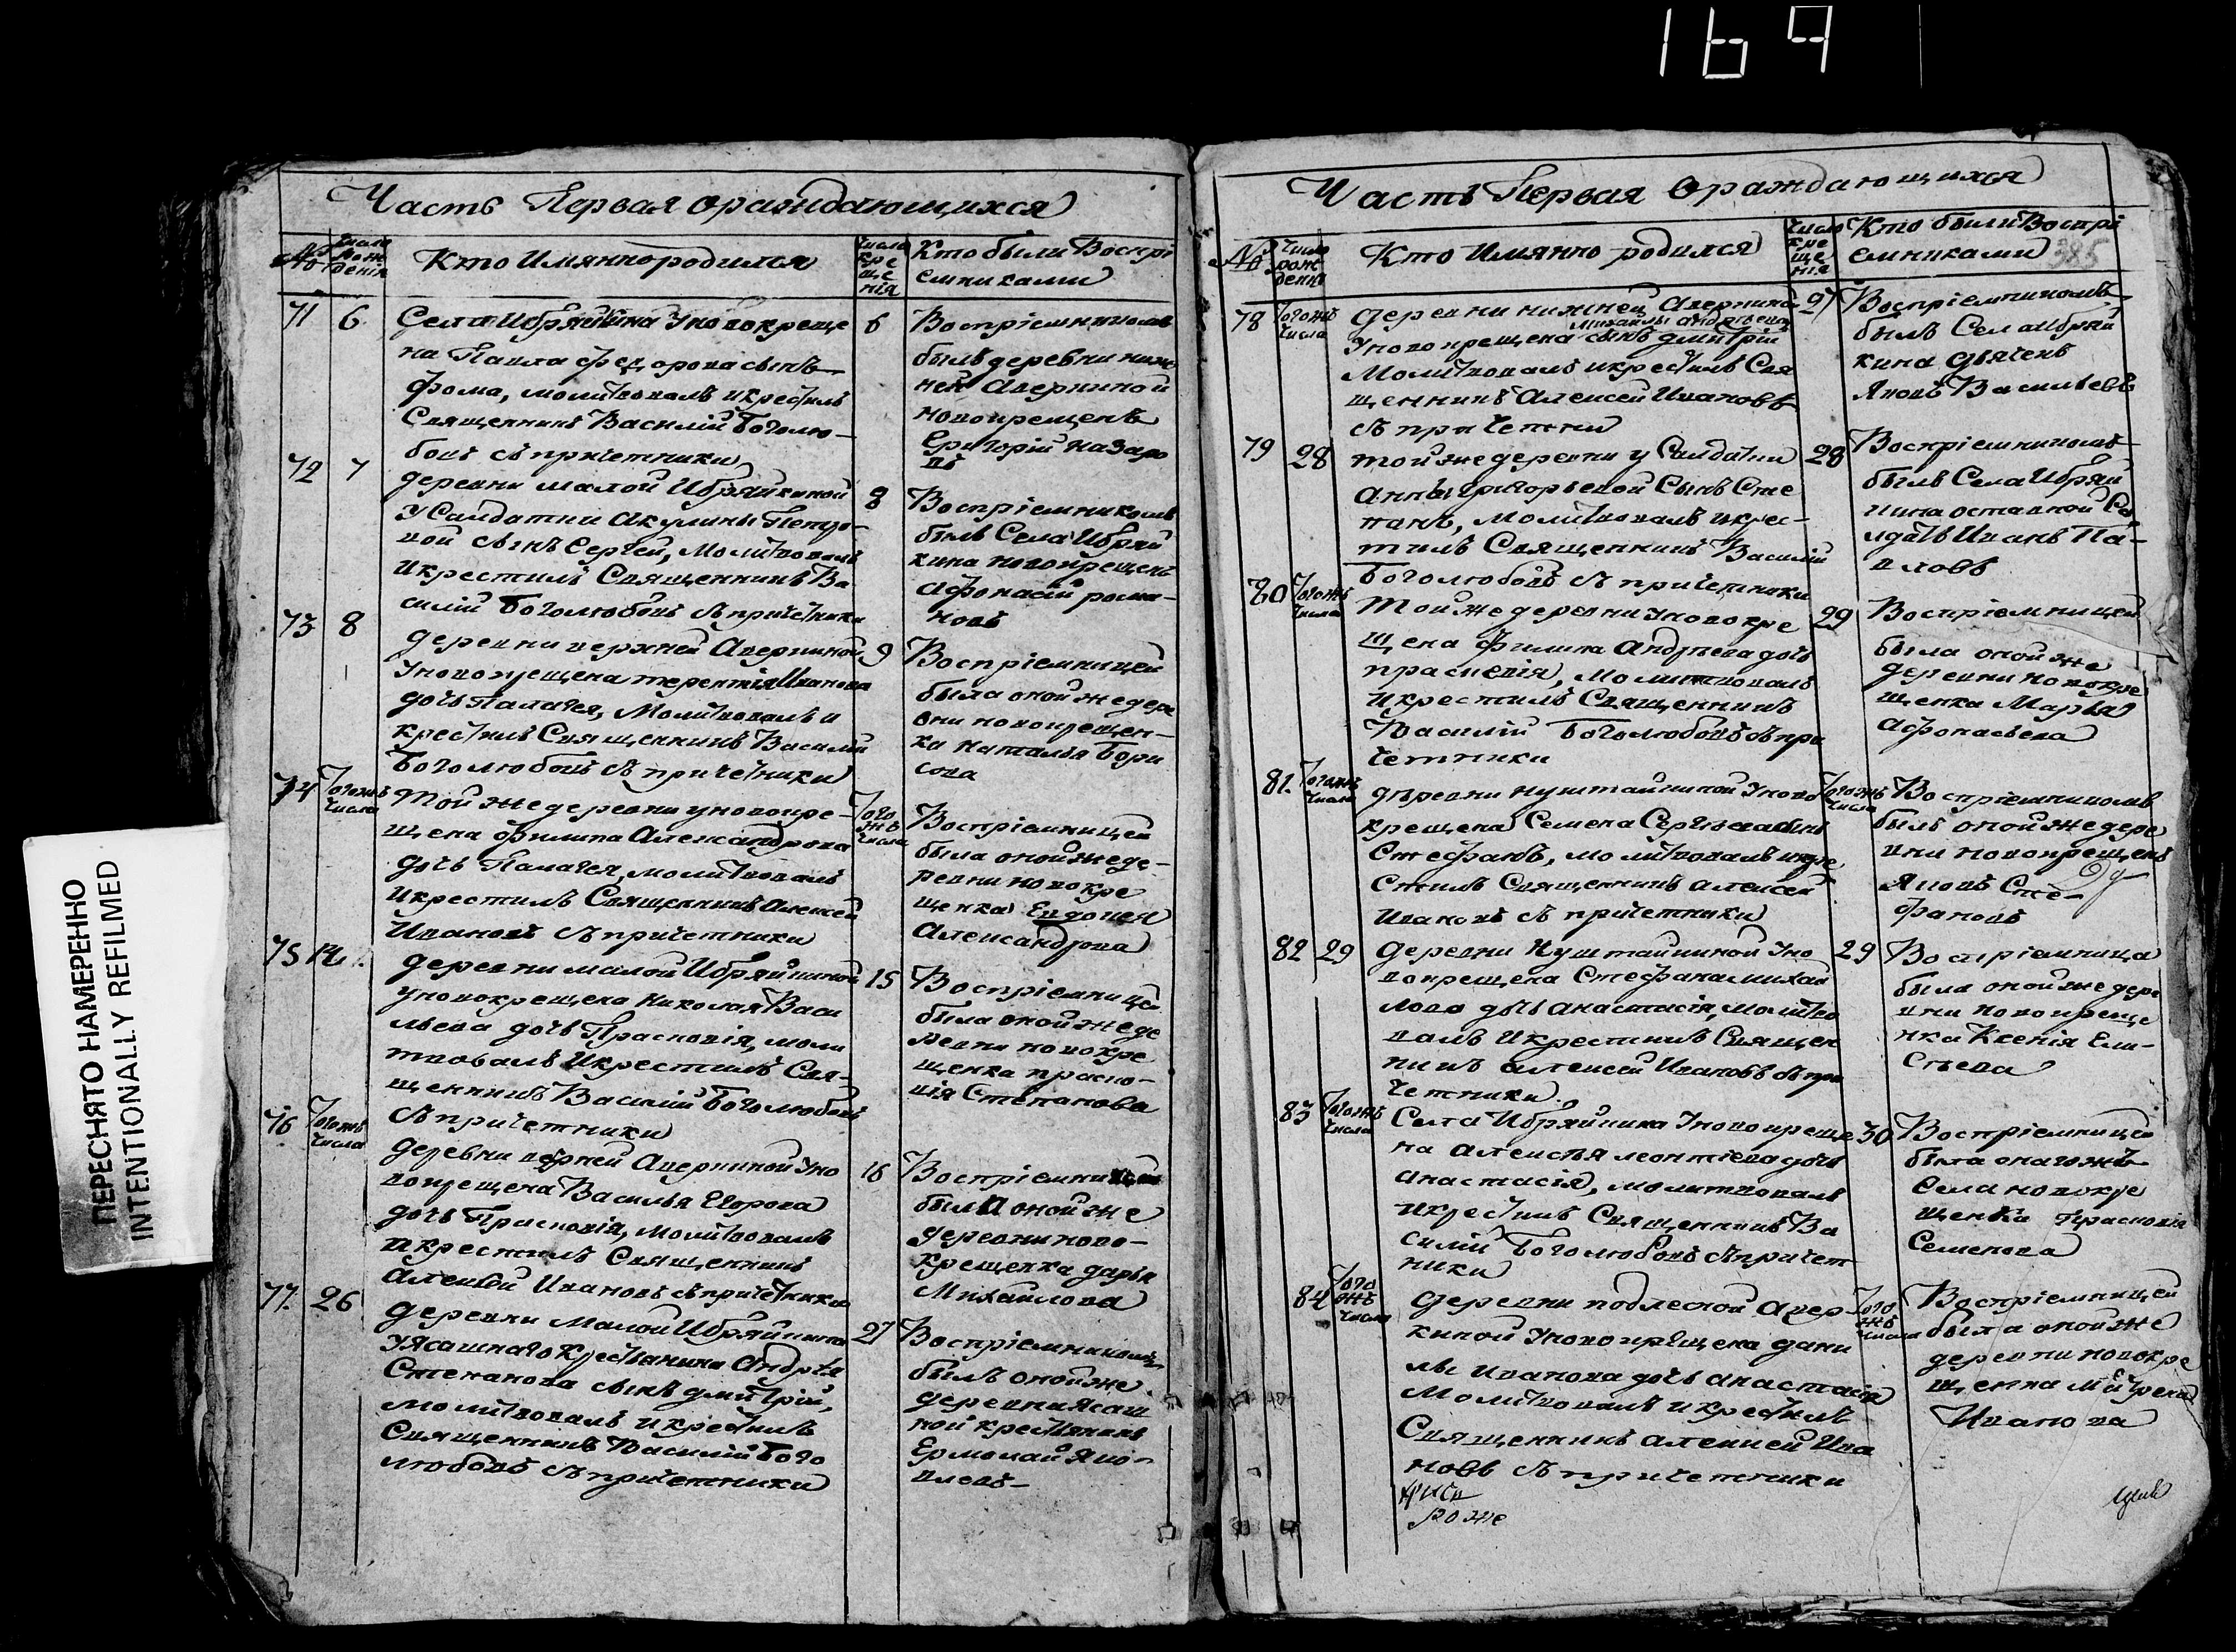 164
Часть Первая ораждающихся
№
Число рож дения
Кто Имянно родился
Числа кре ще нія
Кто были Воспрі
емниками
71
6
Села Ибряйкина у новокреще
на Павла федорова сынъ
фома, молитвовалъ икрестилъ
Священникъ Василій Боголю-
бовъ съ причетники
6
Воспріемникомъ
былъ деревни ниж
ней Аверкиной
новокрещенъ
Григорій Назаро
въ
72
7
деревни малой Ибряйкиной
у Салдатки Акулины Петро-
вой сынъ Сергей, Молитвовалъ
икрестилъ Священникъ Ва
силій Боголюбовъ съ причетники
8
Воспріемникомъ
былъ Села Ибряй
кина новокрещенъ
Афонасій рома-
новъ
73
8
деревни верхней Аверкиной
у новокрещена терентія Иванова
дочь Палагея, Молитвовалъ и
крестилъ Священникъ Василій
Боголюбовъ съ причетники
9
Воспріемницей
была оной же дере
вни новокрещен-
ка наталья Бори
сова
74
Тогожъ Числа
Той же деревни у новокре-
щена филипа Александрова
дочь Палагея, молитвовалъ
икрестилъ Священникъ Алексей
Ивановъ съ причетники
Того жъ Числа
Воспріемницей
была оной же де-
ревни новокре
щенка Евдокея
Александрова
75
14
деревни малой Ибряйкиной
у новокрещена Николая Васи
льева дочь Прасковія, моли
твовалъ Икрестилъ Свя-
щенникъ Василій Боголюбовъ
съ причетники
15
Воспріемницей
была оной же де
ревни новокре
щенка праско-
вія Степанова
76
Тогожъ Числа
деревни верхней Аверкиной у но
вокрещена Василья Егорова
дочь Прасковія, Молитвовалъ
икрестилъ Священникъ
Алексей Ивановъ съ причетники
16
Воспріемницей
была оной же
деревни ново-
крещенка дарья
Михайлова
77.
26
деревни Малой Ибряйкина
у ясашнаго крестьянина Андрея
Степанова сынъ дмитрій,
молитвовалъ икрестилъ
Священникъ Василій Бого
любовъ съ причетники
27
Воспріемникомъ
былъ оной же
деревни ясаш
ной крестьянинъ
Ермолай Яко-
влевъ-
Часть Первая ораждающихся
385
№
Число рож дения
Кто Имянно родился
Число кре ще нія
Кто были Воспрі
емниками
78
Тогожъ Числа
деревни нижней Аверкина
Михайлы Андреева
у новокрещена сынъ дмитрій
Молитвовалъ икрестилъ Свя
щенникъ Алексей Ивановъ
съ причетники
27
Воспріемникомъ
былъ Села Ибряй
кина дьячекъ
Яковъ Васильевъ
79
28
той же деревни у Салдатки
Анны григорьевой Сынъ Сте
панъ, молитвовалъ икрес-
тилъ Священникъ Василій
Боголюбовъ съ причетники
28
Воспріемникомъ
былъ Села Ибряй
кина оставной Са
лдатъ Иванъ Па-
вловъ
80
Тогожъ Числа
Той же деревни у новокре
щена Филипа Андреева дочь
прасковія, молитвовалъ
икрестилъ Священникъ
Василій Боголюбовъ съ при
четники
29
Воспріемницей
была оной же
деревни новокре
щенка Марья
Афонасьева
81.
Тогожъ Числа
деревни нуштайкиной у ново
крещена Семена Сергеева сынъ
Стефанъ, молитвовалъ икре
стилъ Священникъ Алексей
Ивановъ съ причетники
Тогожъ Числа
Воспріемникомъ
былъ оной же дере
вни новокрещенъ
Яковъ Сте-
фановъ
82
29
деревни Нуштайкиной у но
вокрещена Стефана михай
лова дочь анастасія, молитво
валъ икрестилъ Священ
никъ алексей Ивановъ съ при
четники.
29
Воспріемница
была оной же дере
вни новокреще
нка Ксенія Ели-
сеева
83
Тогожъ Числа
Села Ибряйкина у новокреще
на алексея леонтіева дочь
анастасія, молитвовалъ
икрестилъ Священникъ Ва
силій Боголюбовъ съ причет
ники
30
Воспріемницей
была онагожъ
Села новокре
щенка прасковія
Семенова
84
Того жъ Числа
деревни подлесной Авер
киной у новокрещена дани
лы Иванова дочь анастасія
Молитвовалъ икрестилъ
Священникъ алексей Ива
новъ съ причетники
Того жъ Числа
Воспріемницей
была оной же
деревни новокре
щенка Матрена
Иванова
ПЕРЕСНЯТО НАМЕРЕННО
INTENTIONALLY REFILMED